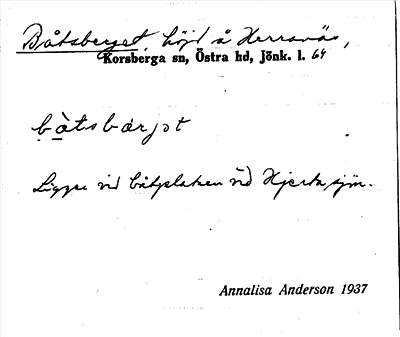 Båtsberget, höjd å Herrsnäs,
Korsberga sn, Östra hd, Jönk. l. 64
bàtsbärjət
Ligger vid båtplatsen vid Hjertasjön.
Annalisa Anderson 1937